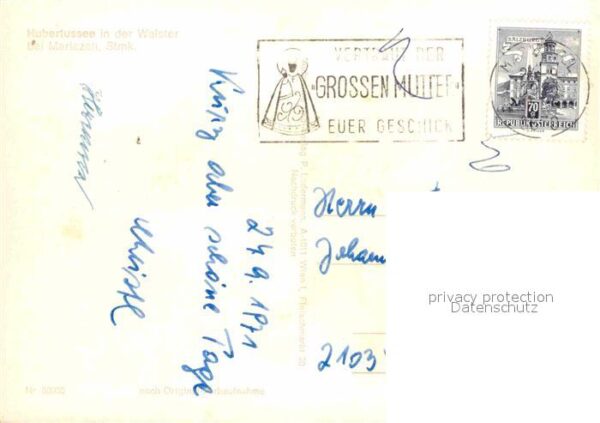 Hubertussee in der Walster
bei Mariazell, Stmk.
VERTRAUT DER
"GROSSEN MUTTER"
EUER GESCHICK
SALZBURG
70
REPUBLIK ÖSTERREICH
24 9. 1971
Kurz aber schöne Tage
Christl
Herrn
Johan
2103
P. Ledermann, A-1011 Wien I, Fleischmarkt 20
Nachdruck verboten
privacy protection
Datenschutz
Nr.
nach Original-Farbaufnahme